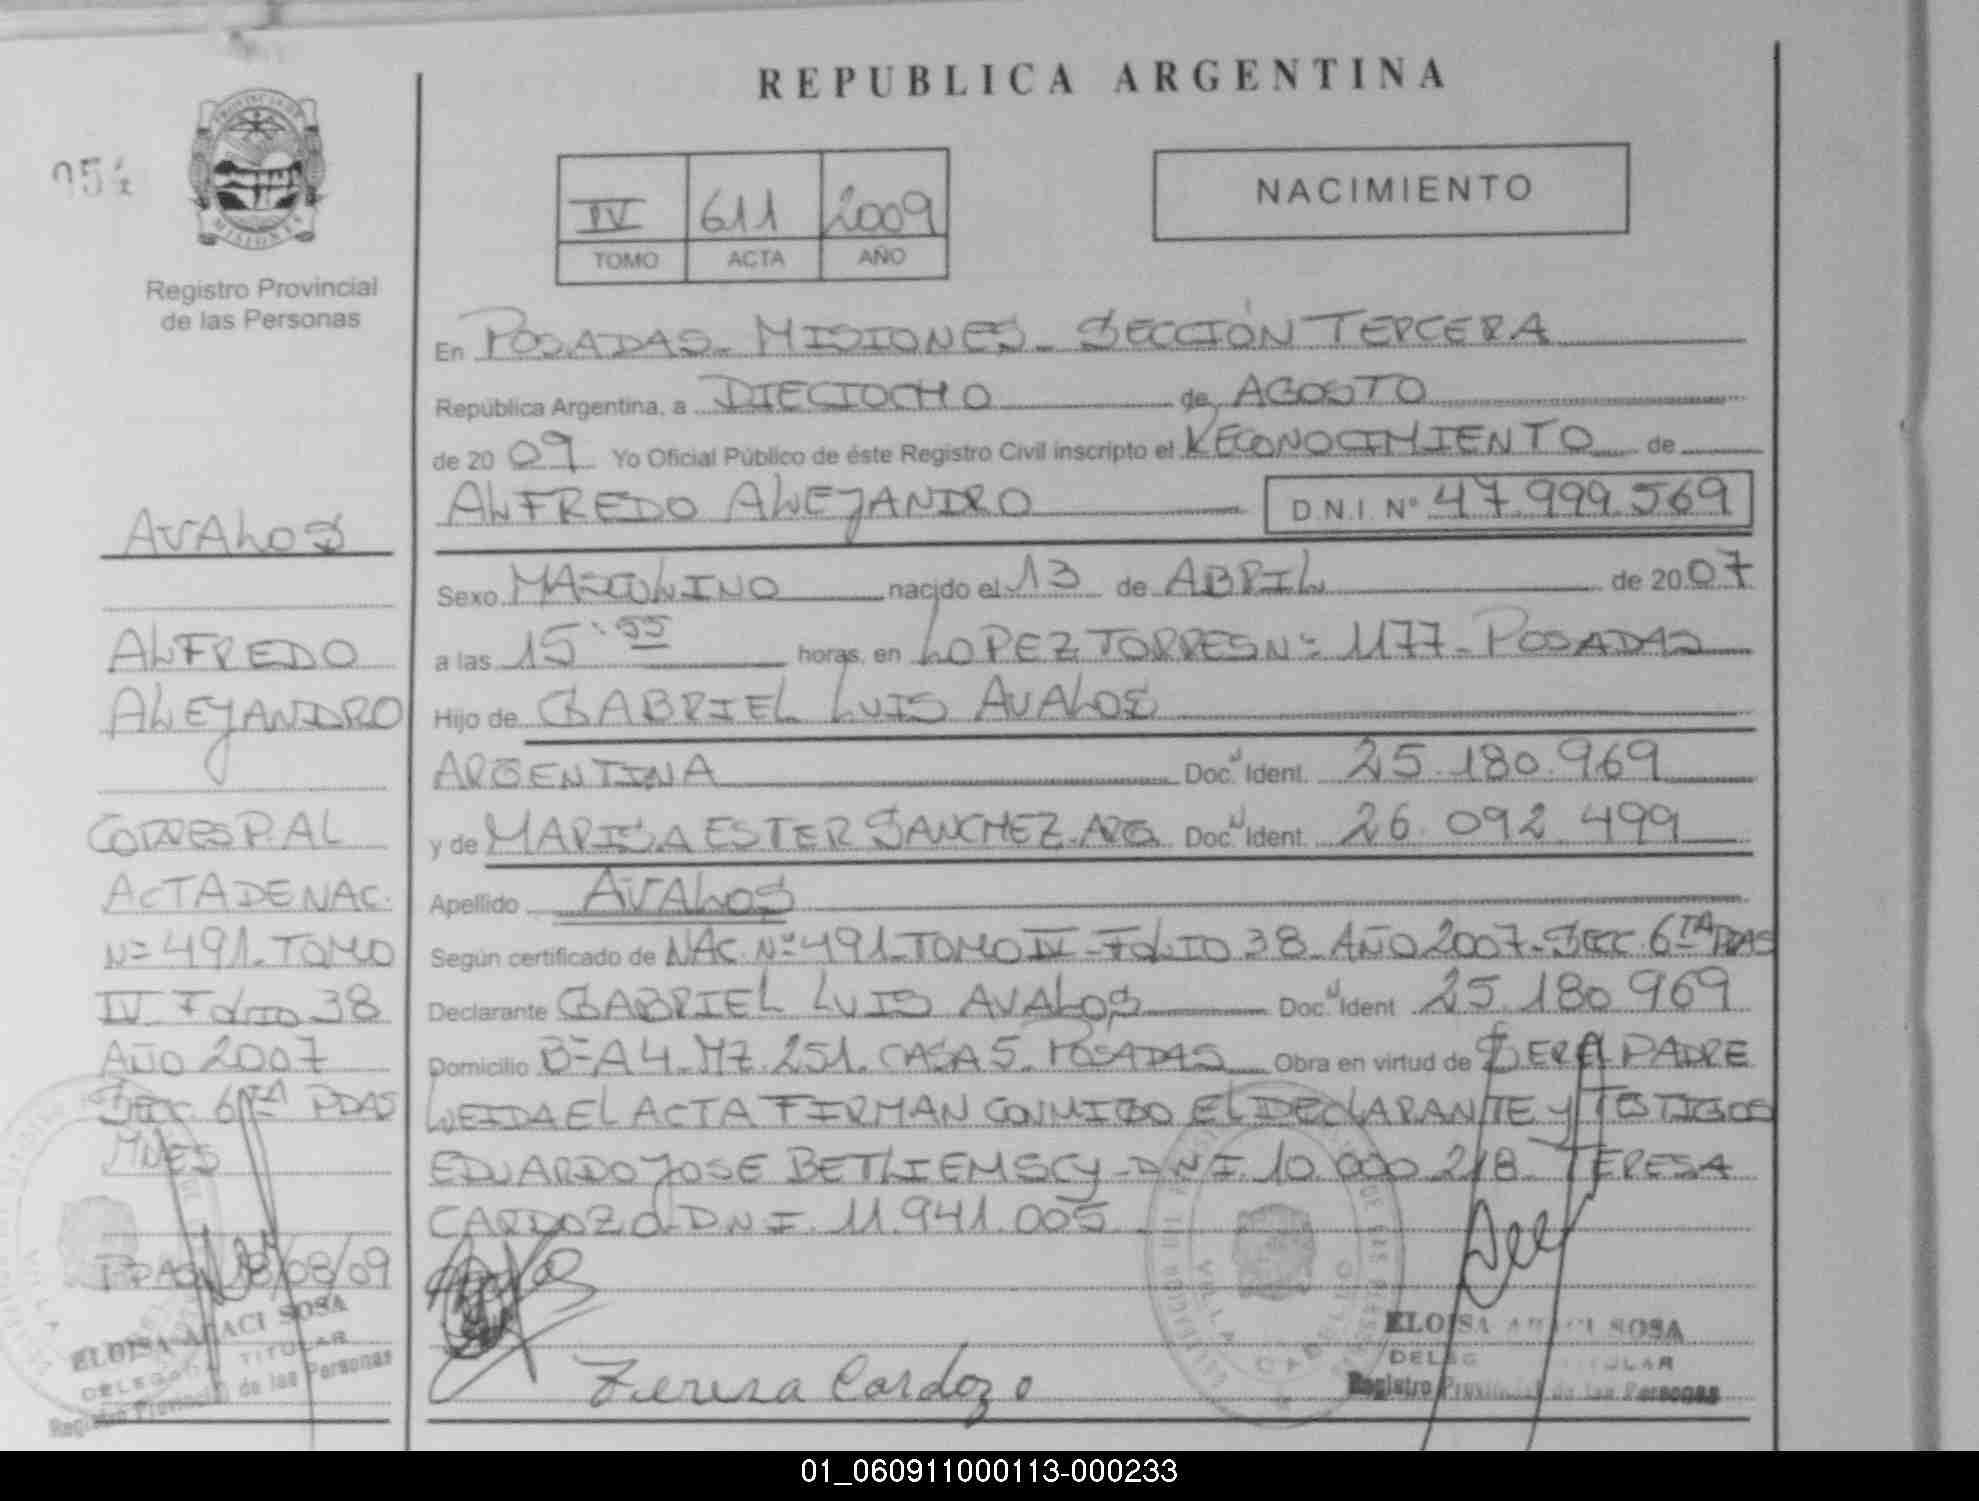 REPUBLICA ARGENTINA
PROVINCIA DE
MISIONES
Registro Provincial
de las Personas
IV 611 2009
TOMO ACTA AÑO
NACIMIENTO
En POSADAS - MISIONES - SECCIÓN TERCERA
República Argentina, a DIECIOCHO de AGOSTO
de 20 09 Yo Oficial Público de éste Registro Civil inscripto el RECONOCIMIENTO de
ALFREDO ALEJANDRO D.N.I. Nº 47.999.569
Sexo MASCULINO nacido el 13 de ABRIL de 20 07
a las 15:55 horas, en LOPEZ TORRES Nº 1177 - POSADAS
Hijo de GABRIEL LUIS AVALOS
ARGENTINA Doc. Ident. 25.180.969
y de MARISA ESTER SANCHEZ - ARG. Doc. Ident. 26.092.499
Apellido AVALOS
Según certificado de NAC. Nº 491 - TOMO IV - FOLIO 38 - AÑO 2007 - SECC. 6TA PDAS
Declarante GABRIEL LUIS AVALOS Doc. Ident. 25.180.969
Domicilio Bº A4 - MZ. 251 - CASA 5 - POSADAS Obra en virtud de SER EL PADRE
LEIDA EL ACTA FIRMAN CONMIGO EL DECLARANTE Y TESTIGOS
EDUARDO JOSE BETLIEMSCY - D.N.I. 10.000.218 - TERESA
CARDOZO - D.N.I. 11.941.005
Teresa Cardozo
ELOISA ARACI SOSA
DELEGADA TITULAR
Registro Provincial de las Personas
AVALOS
ALFREDO
ALEJANDRO
CORRESP. AL
ACTA DE NAC.
Nº 491 - TOMO
IV - FOLIO 38
AÑO 2007
SECC. 6TA PDAS
MNES
PDAS 18/08/09
ELOISA ARACI SOSA
DELEGADA TITULAR
Registro Provincial de las Personas
01_060911000113-000233